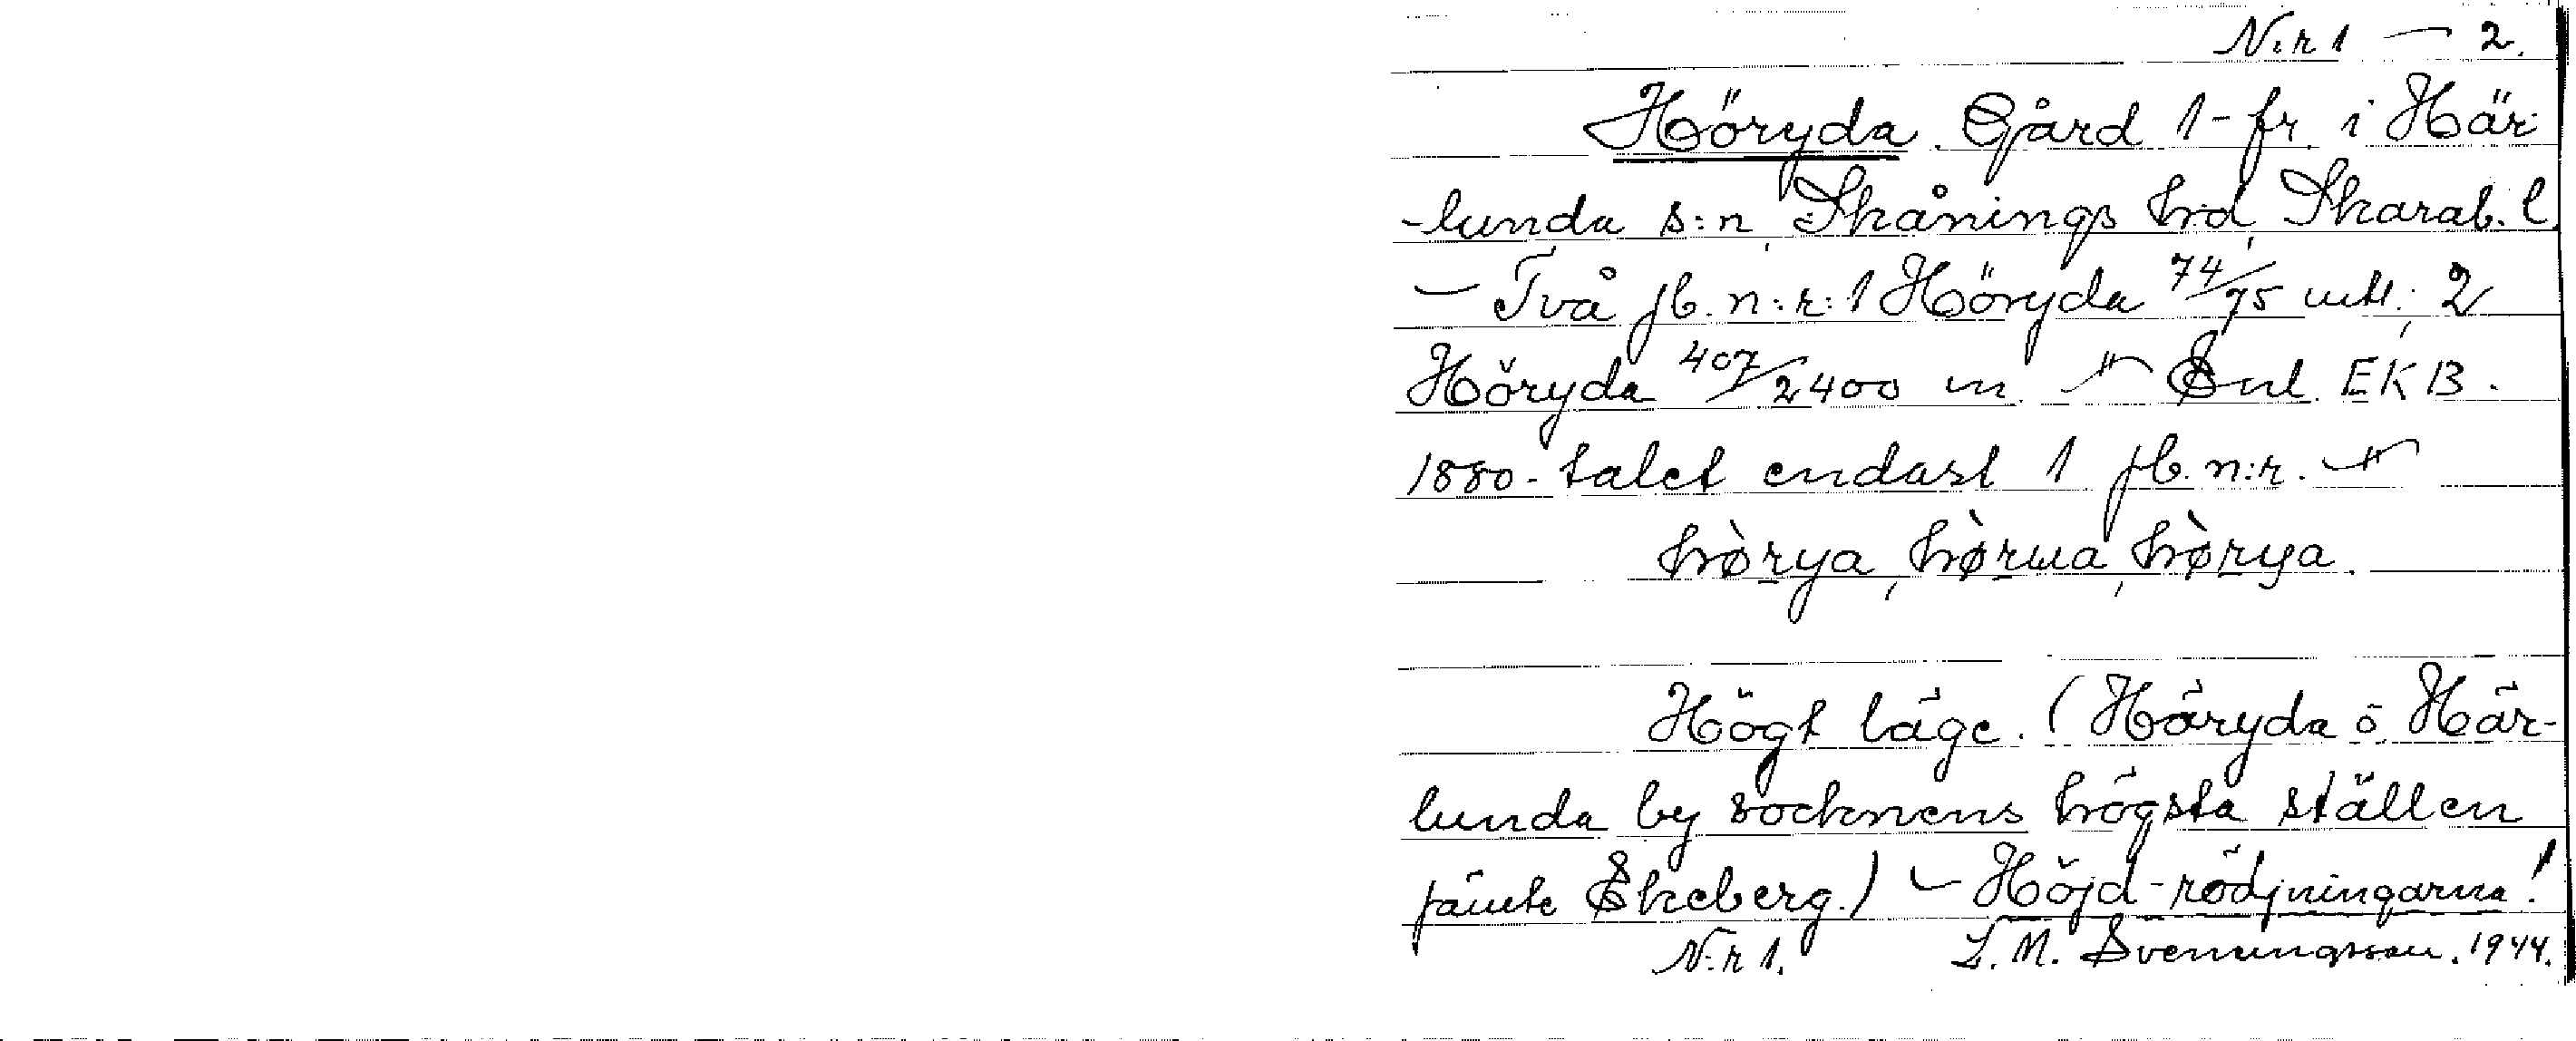 N:r 1 — 2.
Höryda. Gård 1-fr. i Här
-lunda s:n, Skånings hd, Skarab. l.
— Två jb. n:r: 1 Höryda 74/75 mtl; 2
Höryda 407/2400 m. — Enl. EKB.
1880-talet endast 1 jb. n:r. —
hø̀rya, hø̀rɯa, hø̀rya.
Högt läge. (Höryda o. Här-
lunda by socknens högsta ställen
jämte Ekeberg.) — Höjd-rödjningarna!
N:r 1. L. M. Svenungsson. 1944.